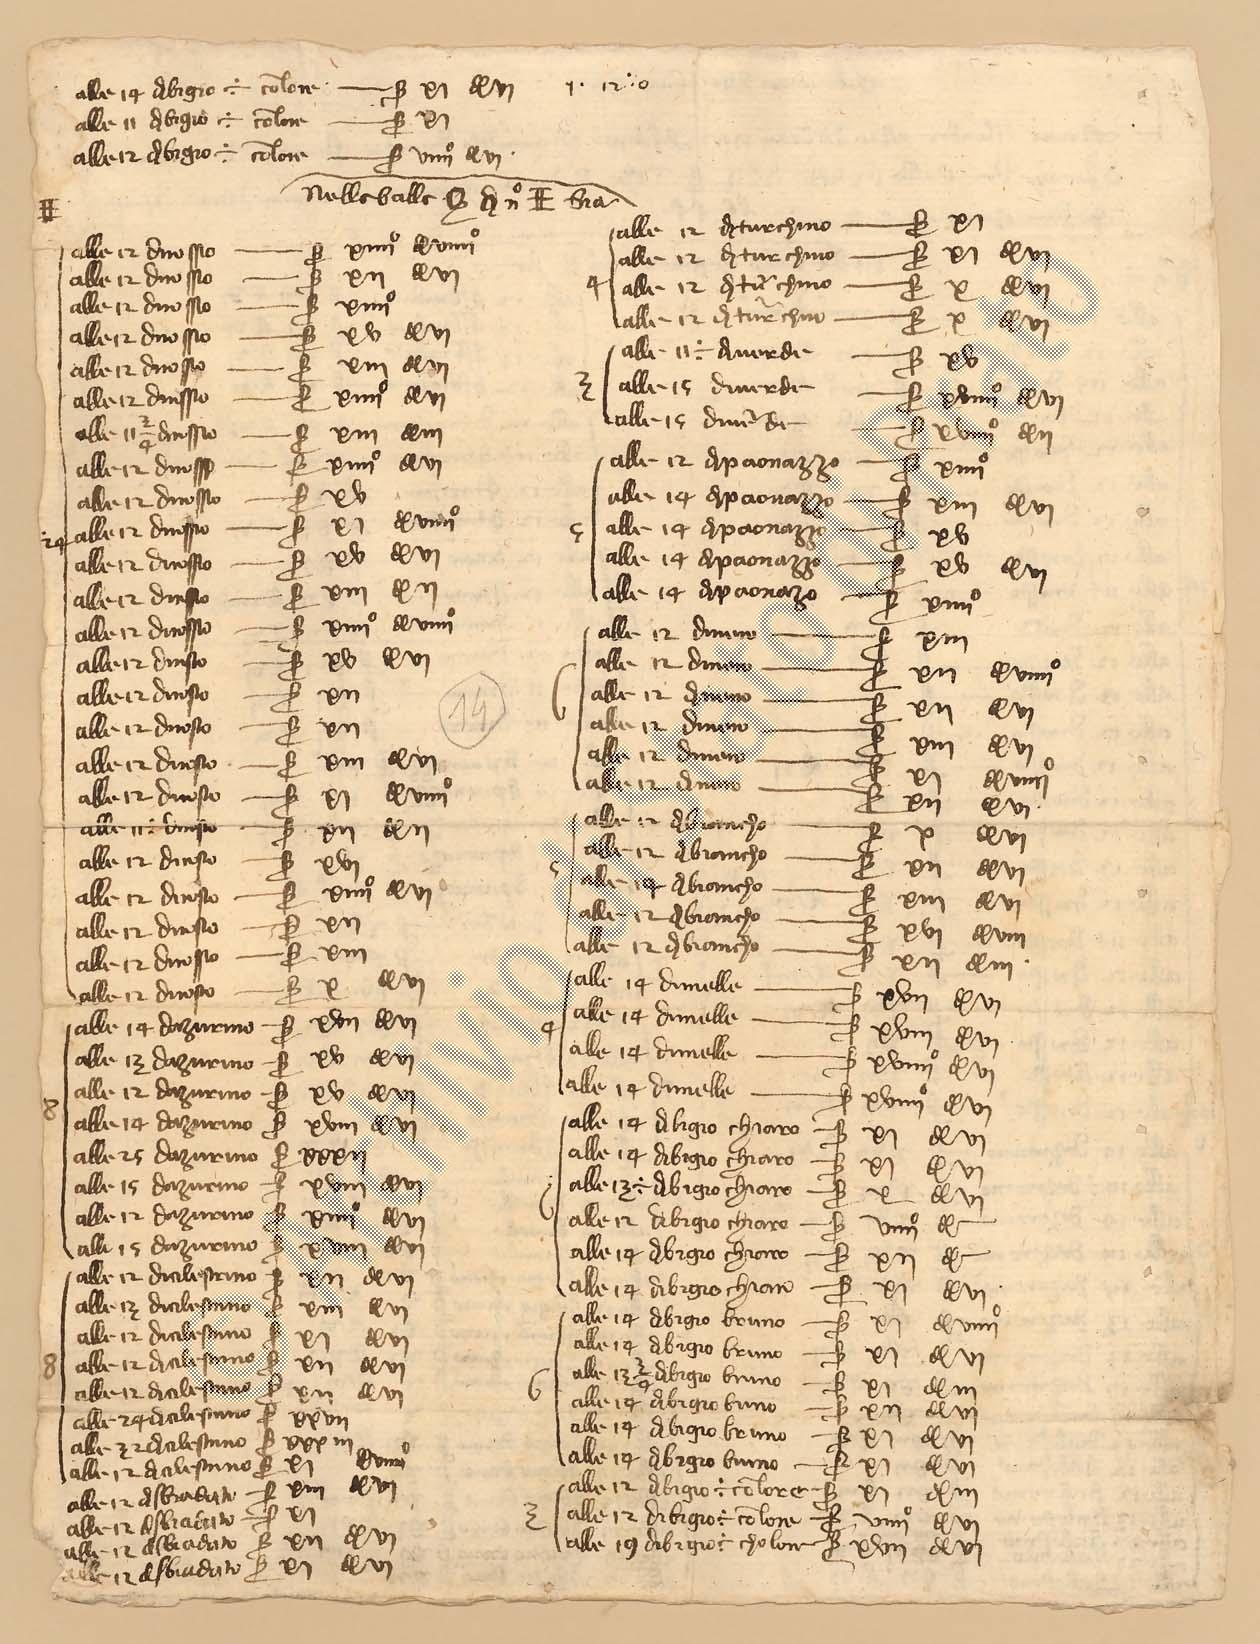 alle 14 di bigio ÷ colore ß xi d vi 1. 12 : 0
alle 11 di bigio ÷ colore ß xi
alle 12 di bigio ÷ colore ß viiii° d vi
Nelle balle di n° II
II
alle 12 di rosso ß xiiii° d viiii°
alle 12 di rosso ß xii d vi
alle 12 di rosso ß xiiii°
alle 12 di rosso ß xv d vi
alle 12 di rosso ß xiii d vi
alle 12 di rosso ß xiiii° d vi
alle 11 3/4 di rosso ß xiii d iii
alle 12 di rosso ß xiiii° d vi
alle 12 di rosso ß xv
24 alle 12 di rosso ß xi d viiii°
alle 12 di rosso ß xv d vi
alle 12 di rosso ß xiii d ii
alle 12 di rosso ß xiiii° d viiii°
alle 12 di rosso ß xv d vi
alle 12 di rosso ß xii
alle 12 di rosso ß xii
alle 12 di rosso ß xiii d vi
alle 12 di rosso ß xi d viiii°
alle 11 ÷ di rosso ß xii d ii
alle 12 di rosso ß xvi
alle 12 di rosso ß xiiii° d vi
alle 12 di rosso ß xii
alle 12 di rosso ß xiii
alle 12 di rosso ß x d vi
alle 14 d azurino ß xvii d vi
alle 13 d azurino ß xv d vi
alle 12 d azurino ß xv d vi
8 alle 14 d azurino ß xviii d vi
alle 25 d azurino ß xxxii
alle 15 d azurino ß xviii d vi
alle 12 d azurino ß xiiii° d vi
alle 15 d azurino ß xviii d vi
alle 12 di cilestrino ß xii d vi
alle 13 di cilestrino ß xiii d vi
alle 12 di cilestrino ß xi d vi
8 alle 12 di cilestrino ß xii d vi
alle 12 di cilestrino ß xii d vi
alle 24 di cilestrino ß xxvii
alle 32 di cilestrino ß xxxiii
alle 12 di cilestrino ß xi d viiii°
alle 12 di sbiadato ß xiii d vi
alle 12 di sbiadato ß xi
alle 12 di sbiadato ß xii d vi
alle 12 di sbiadato ß xi d vi
14
alle 12 di turchino ß xi
alle 12 di turchino ß xi d vi
4 alle 12 di turchino ß x d vi
alle 12 di turchino ß x d vi
alle 11 ÷ di verde ß xv
3 alle 15 di verde ß xviiii° d vi
alle 15 di verde ß xviiii° d ii
alle 12 di paonazzo ß xiiii°
alle 14 di paonazzo ß xiii d vi
5 alle 14 di paonazzo ß xv
alle 14 di paonazzo ß xv d vi
alle 14 di paonazo ß xiiii°
alle 12 di nero ß xiii
alle 12 di nero ß xii d viiii°
6 alle 12 di nero ß xii d vi
alle 12 di nero ß xiii d vi
alle 12 di nero ß xi d viiii°
alle 12 di nero ß xii d vi
alle 12 di biancho ß x d vi
alle 12 di biancho ß xii d vi
5 alle 14 di biancho ß xiii d vi
alle 12 di biancho ß xvi d viii
alle 12 di biancho ß xii d iii
alle 14 di melle ß xvii d vi
4 alle 14 di melle ß xviii d vi
alle 14 di melle ß xviiii° d vi
alle 14 di melle ß xviiii° d vi
alle 14 di bigio chiaro ß xi d vi
alle 14 di bigio chiaro ß xi d vi
6 alle 13 ÷ di bigio chiaro ß x d vi
alle 12 di bigio chiaro ß viiii° d –
alle 14 di bigio chiaro ß xii d –
alle 14 di bigio chiaro ß xi d vi
alle 14 di bigio bruno ß xi d viiii°
alle 14 di bigio bruno ß xi d vi
6 alle 13 3/4 di bigio bruno ß xi d iii
alle 14 di bigio bruno ß xii d vi
alle 14 di bigio bruno ß xi d vi
alle 14 di bigio bruno ß xi d vi
alle 12 di bigio ÷ colore ß xi d iii
3 alle 12 di bigio ÷ colore ß viiii° d vi
alle 19 di bigio ÷ cholore ß xvii d vi